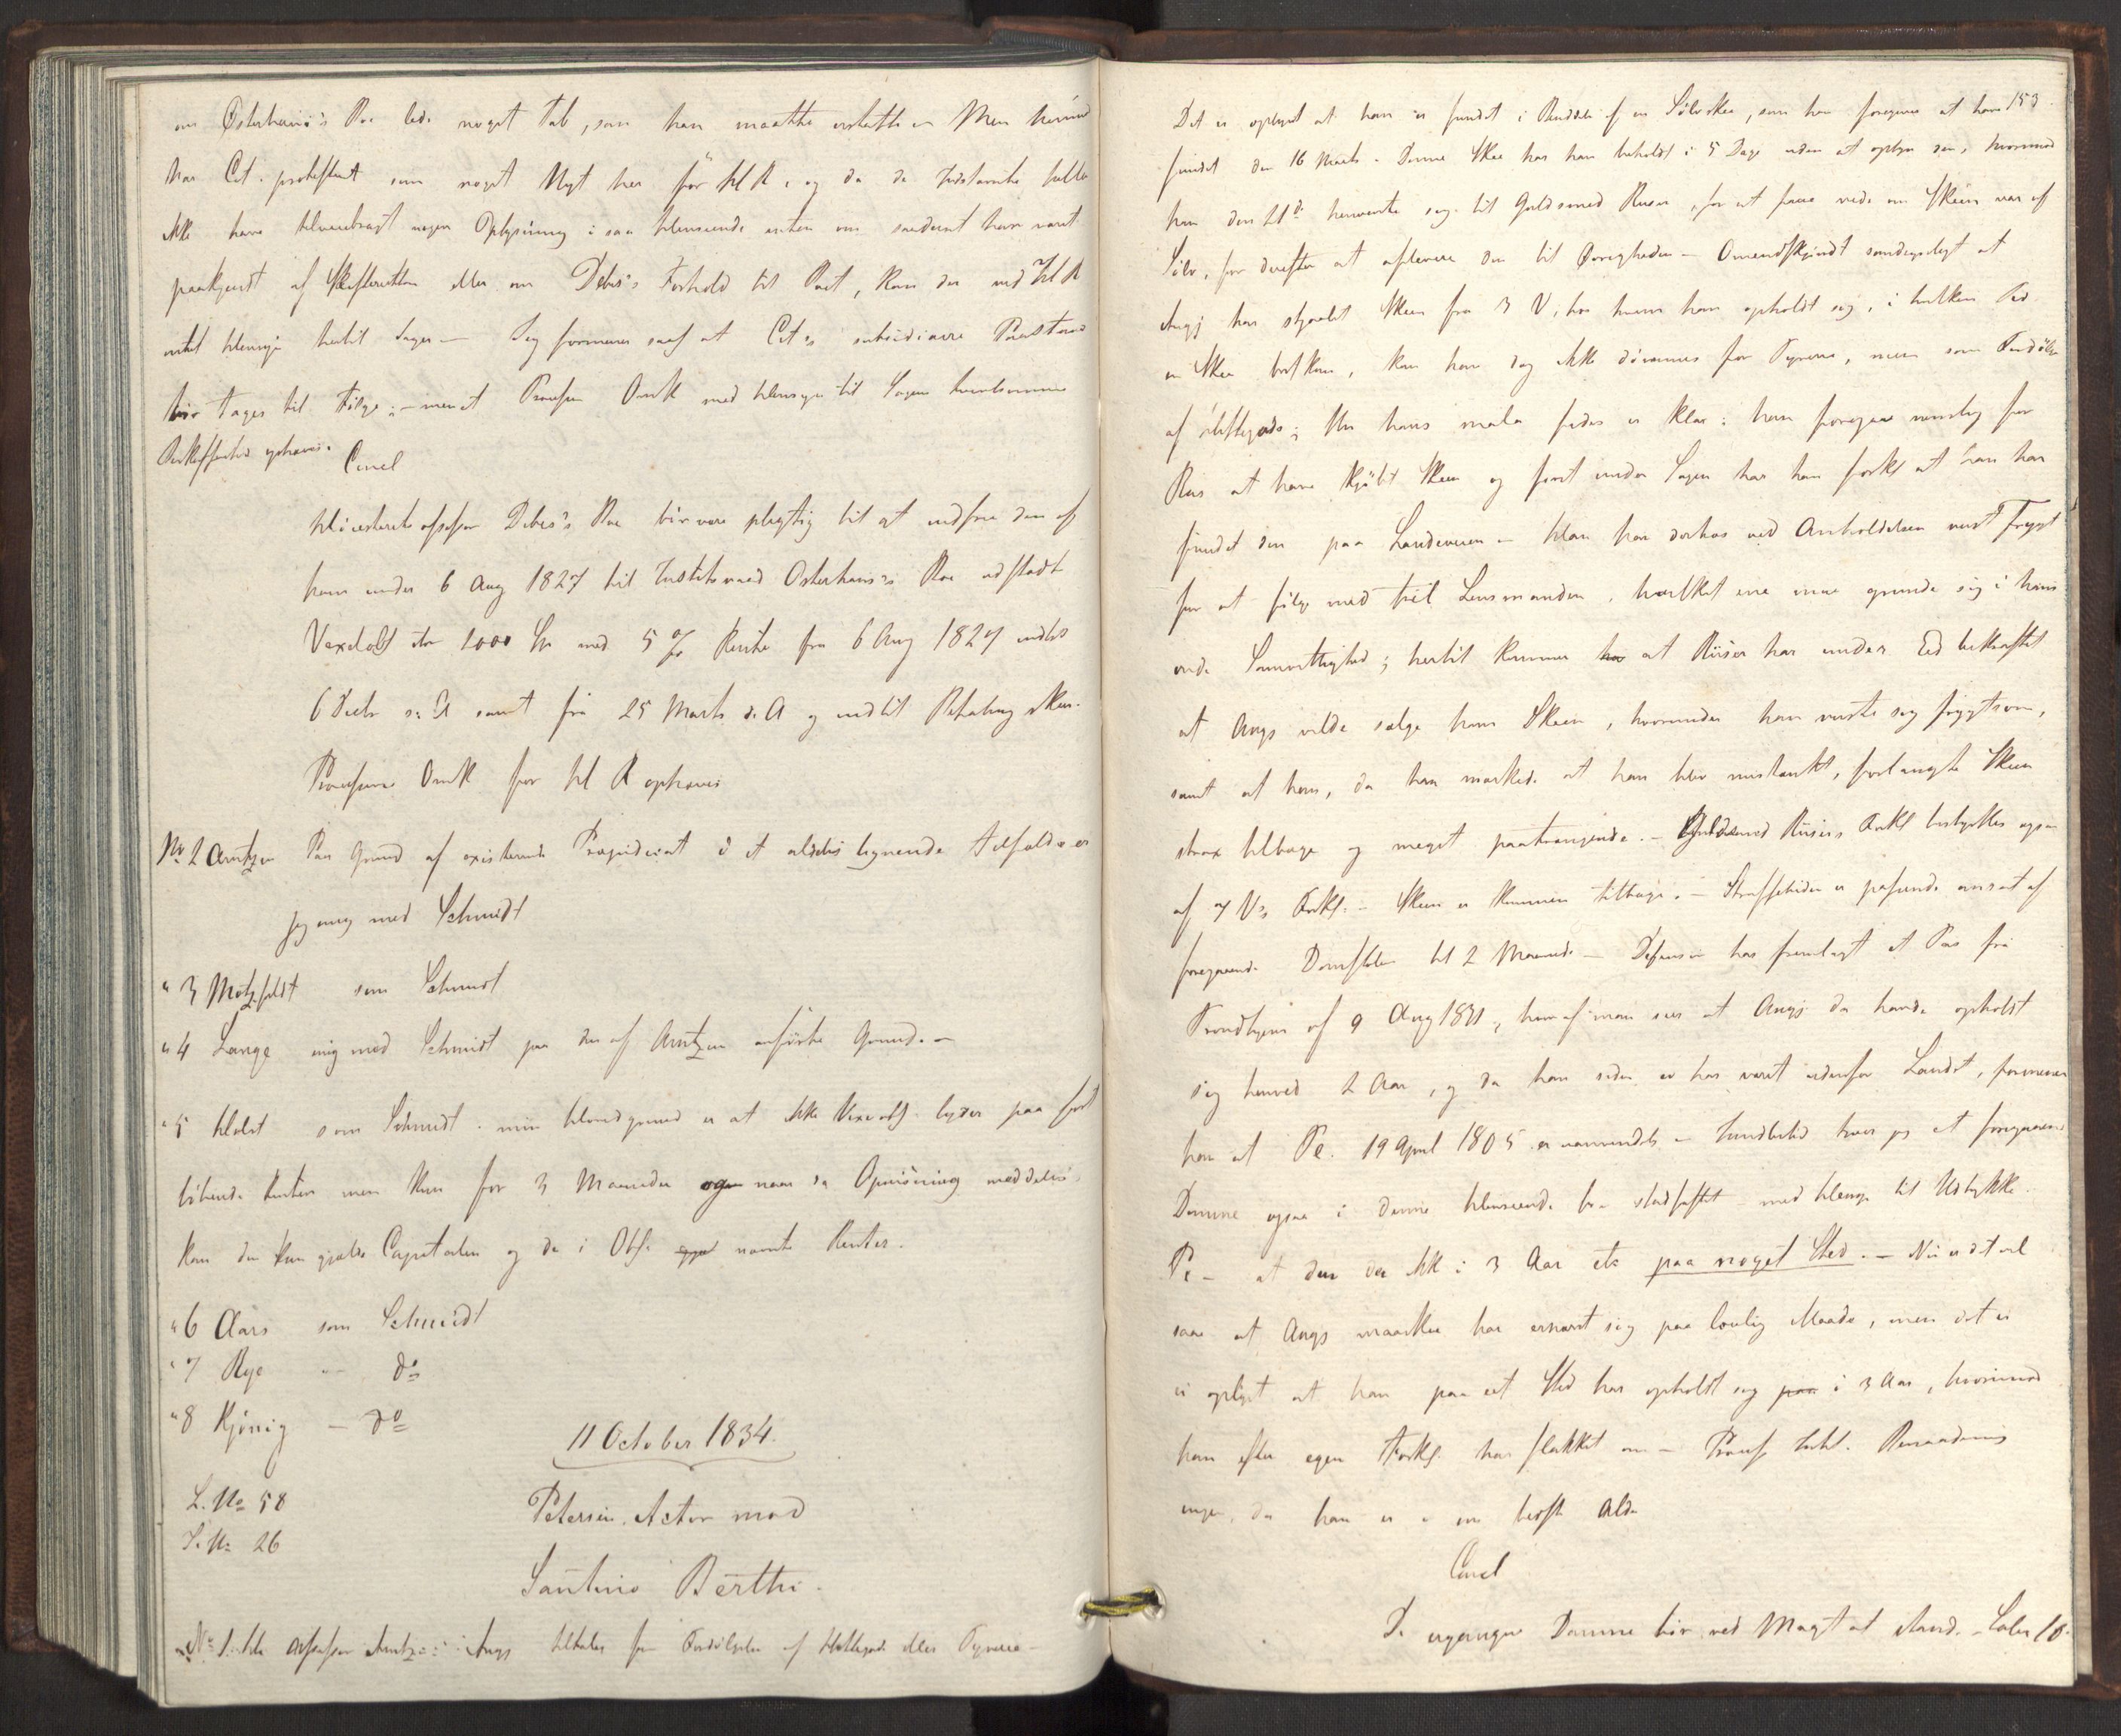 om Østerhaus's Boe lede noget Tab, som han maatte erstatte. Men herimod
har Cit. protesteret som noget Nyt her før H R, og da de Indstevnte heller
ikke have tilveiebragt nogen Oplysning i saa Henseende enten om saadant har været
paakjendt af Skifteretten eller om Debes's Forhold til Boet, kan der ved H R
intet Hensyn hertil tages — Jeg formener saal. at Cit.s subsidiaire Paastand
bør tages til Følge; — men at Processens Omk med Hensyn til Sagens tvivlsomme
Beskaffenhed ophæves.
Concl
Høiesteretsassessor Debes's Boe bør være pligtig til at indfrie den af
ham under 6 Aug 1827 til Justitsraad Osterhaus's Boe udstædte
Vexelobl. stor 1000 Spd med 5 % Rente fra 6 Aug 1827 indtil
6 Decbr s. A samt fra 25 Marts d. A og indtil Betaling skeer.
Processens Omk for H R ophæves
No 2 Arntzen Paa Grund af existerende Præjudicat i et aldeles lignende Tilfælde er
jeg enig med Schmidt
" 3 Motzfeldt som Schmidt
" 4 Lange enig med Schmidt paa den af Arntzen anførte Grund. —
" 5 Holst som Schmidt. min Hovedgrund er at ikke Vexelobl. lyder paa fort
løbende Renter men kun for 3 Maaneder og naar da Opsigning meddeles,
kan den kun gjælde Capitalen og de i Obl. nævnte Renter.
" 6 Aars som Schmidt
" 7 Rye — do
" 8 Kjønig — do
11 October 1834.
L. No 58
Petersen, Actor mod
S. No 26
Santino Berthi.
No 1. Assessor Arntzen: Angj tiltales for Fordølgelse af Hittegods eller Tyverie —
153
Det er oplyst at han er fundet i Besiddelse af en Sølvskee, som han foregiver at have
fundet den 16 Marts. Denne Skee har han beholdt i 5 Dage uden at oplyse den, hvorimod
han den 21de henvendte sig til Guldsmed Riiser, for at faae vide om Skeen var af
Sølv, for derefter at aflevere den til Øvrigheden — Omendskjøndt sandsynligt at
Angj har stjaalet Skeen fra 3 V, hos hvem han opholdt sig, i hvilken Tid
en Skee bortkom, kan han dog ikke dømmes for Tyverie, men som Fordølger
af Hittegods; thi hans mala fides er klar: han foregav nemlig for
Riis at have kjøbt Skeen og først under Sagen har han forkl at han har
fundet den paa Landeveien — Han har derhos ved Anholdelsen viist Frygt
for at følge med til Lensmanden, hvilket ene maa grunde sig i hans
onde Samvittighed; hertil kommer at Riiser har under Ed bekræftet
at Angj vilde sælge ham Skeen, hvorunder han viste sig frygtsom,
samt at han, da han mærkede at han blev mistænkt, forlangte Skeen
strax tilbage og meget paatrængende. — Guldsmed Riisers Forkl bestyrkes ogsaa
af 7 V's Forkl. — Skeen er kommen tilbage. — Straffetiden er passende ansat af
foregaaende Domstoler til 2 Maaneder — Defensor har fremlagt et Pas fra
Trondhjem af 9 Aug 1831, hvoraf man seer at Angj da havde opholdt
sig henved 2 Aar, og da han siden ei har været udenfor Landet, formener
han at Pl. 19 April 1805 er uanvendelig — Imidlertid troer jeg at foregaaende
Domme ogsaa i denne Henseende bør stadfæstes med Hensyn til Udtrykket
Pl — at den der ikke i 3 Aar etc paa noget Sted. — Nu er det vel
saa at Angj maaskee har ernæret sig paa lovlig Maade, men det er
ei oplyst at han paa eet Sted har opholdt sig paa i 3 Aar, hvorimod
han efter egen Forkl. har flakket om — Benaadning
ingen, da han er i sin bedste Alder
Concl
De ergangne Domme bør ved Magt at stande. — Salær 10.